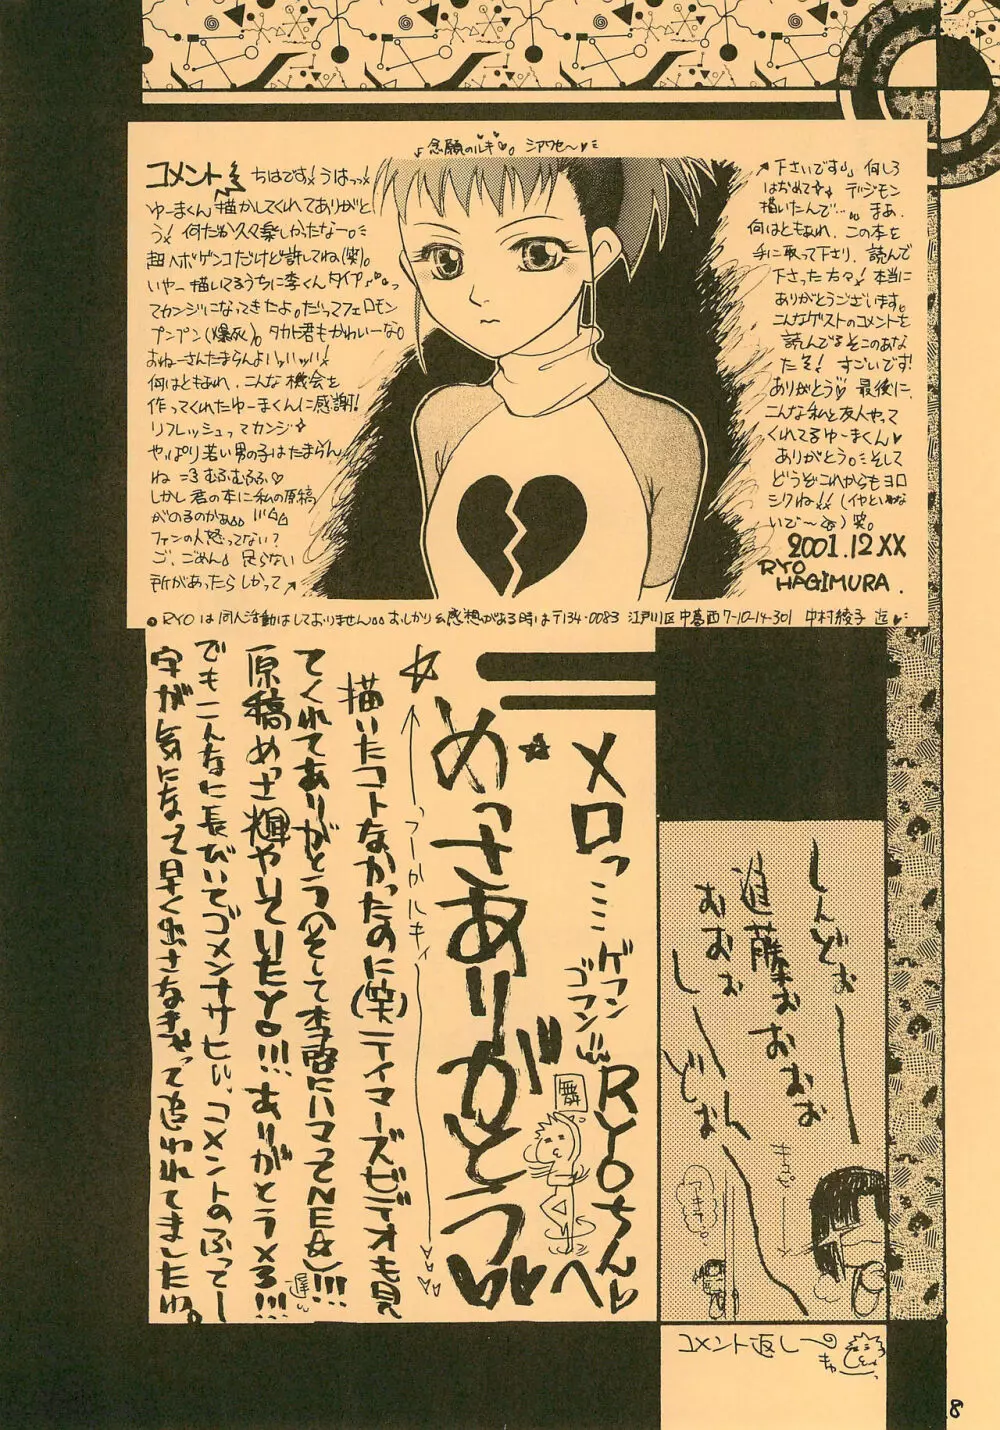 ♪念願のルキ♥。シアワセ〜♥
コメント
ちはです!うはっっ
ゆーまくん描かしてくれてありがと
う!何だか久々楽しかったなー。
超ヘボゲンコだけど許してね(笑)。
いやー描いてるうちに李くんタイプ♪
ってカンジになってきたよ。だってフェロモン
プンプン(爆死)。タカト君もかわいーな。
おねーさんたまらんよハァハァ!
何はともあれ、こんな機会を
作ってくれたゆーまくんに感謝!
リフレッシュってカンジ☆
やっぱり若い男の子はたまらん
ね =3 むるむるふ♡
しかし君の本に私の原稿
がのるのかぁ
ファンの人怒ってない?
ご、ごめん♪ 足らない
所があったらしかって↗
↗下さいです♪ 何しろ
はじめて デジモン
描いたんで…。まあ、
何はともあれ、この本を
手に取って下さり、読んで
下さった方々!本当に
ありがとうございます。
こんなゲストのコメントを
読んでるそこのあな
たそ!すごいです!
ありがとう♡ 最後に、
こんな私と友人やって
くれてるゆーまくん♥
ありがとう。そして
どうぞこれからもヨロ
シクね!!(イヤといわな
いで〜)笑。
2001.12XX
RYO
HAGIMURA.
RYOは同人活動はしておりません おしかり&感想がある時は〒134-0083 江戸川区中葛西7-10-14-301 中村綾子 迄♥
メロっミミ
ゲフン
ゴフン!!
RYOちんへ♥
舞
めっさありがとう♥♥
つーかルキィ
描いたコトなかったのに(笑)テイマーズビデオも見
てくれてありがとう(そして李君にハマってNE☆)!!!
遅い
原稿めっさ輝やいていたYO!!!ありがとうメ3!!!
でもこんなに長びいてゴメンナサヒぃ。コメントのふってー
字が気になって早く出さなきゃって追われてましたわ。
しんどぉーーー
進藤ぉおおおお
おおぉ
しーーんどぉ
キュピ
コメント返し〜
きゅ
8